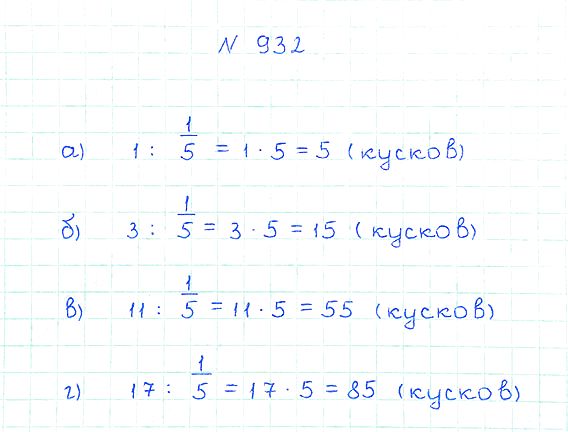 N 932
а) 1 : 1/5 = 1 · 5 = 5 (кусков)
б) 3 : 1/5 = 3 · 5 = 15 (кусков)
в) 11 : 1/5 = 11 · 5 = 55 (кусков)
г) 17 : 1/5 = 17 · 5 = 85 (кусков)